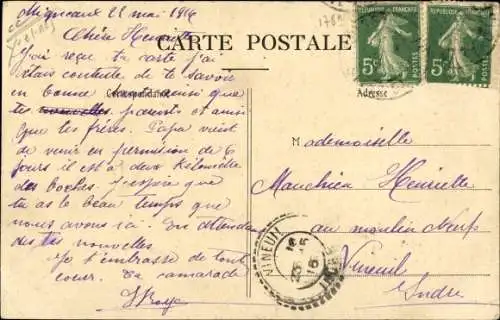 Migneaux 22 mai 1916
Chère Henriette
CARTE POSTALE
J'ai reçu ta carte j'ai
étais contente de te savoir
en bonne ainsi que
Correspondance
tes nouvelles parents et amis
que tes frères. Papa vient
de venir en permission de 6
jours il est a deux kilomètre
des boches. J'espère que
tu as le beau temps que
nous avons ici. En attendant
des tes nouvelles
Je t'embrasse de tout
coeur. Ta camarade
REPUBLIQUE FRANÇAISE
5c
POSTES
REPUBLIQUE FRANÇAISE
5c
POSTES
Adresse
Mademoiselle
Henriette
au moulin Neuf
Vineuil
Indre
VINEUIL
INDRE